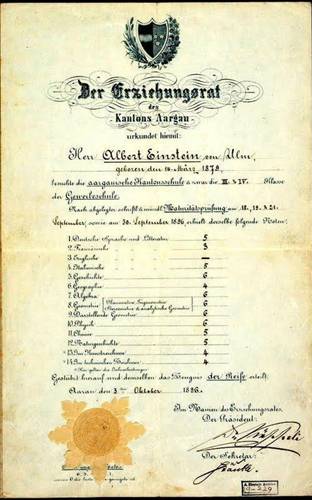 Der Erziehungsrat
des
Kantons Aargau
urkundet hiemit:
Herr Albert Einstein von Ulm,
geboren den 14. März 1879,
besuchte die aargauische Kantonsschule & zwar die III. & IV. Klasse
der Gewerbeschule.
Nach abgelegter schriftl. & mündl. Maturitätsprüfung am 18., 19. & 21.
September, sowie am 30. September 1896, erhielt derselbe folgende Noten:
1. Deutsche Sprache und Litteratur 5
2. Französische 3
3. Englische —
4. Italienische 5
5. Geschichte 6
6. Geographie 4
7. Algebra 6
8. Geometrie (Planimetrie, Trigonometrie 6
Stereometrie & analytische Geometrie)
9. Darstellende Geometrie 6
10. Physik 6
11. Chemie 5
12. Naturgeschichte 5
* 13. Im Kunstzeichnen 4
* 14. Im technischen Zeichnen 4
* Hier gelten die Jahresleistungen.
Gestützt hierauf wird demselben das Zeugnis der Reife erteilt.
Aarau den 3ten Oktober 1896.
Im Namen des Erziehungsrates,
Der Präsident:
Der Sekretär: